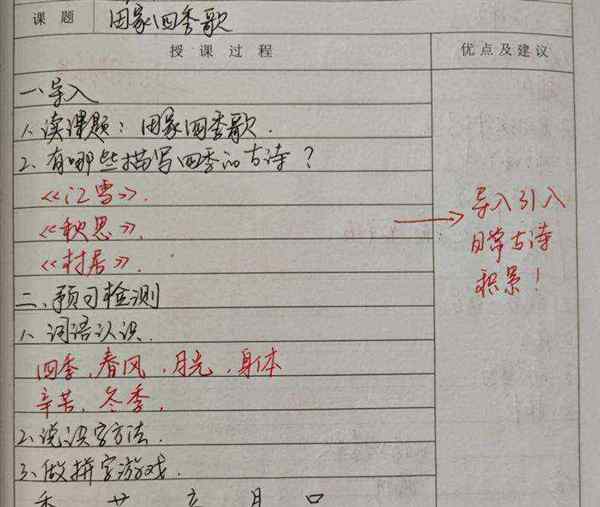 课题 田家四季歌
授课过程 优点及建议
一、导入
1、读课题：田家四季歌.
2、有哪些描写四季的古诗？
《江雪》.
《秋思》.
《村居》.
导入引入
日常古诗
积累！
二、预习检测
1、词语认识.
四季,春风,月光,身体
辛苦,冬季,
2、说识字方法.
3、做拼字游戏.
季 艹 立 月 口